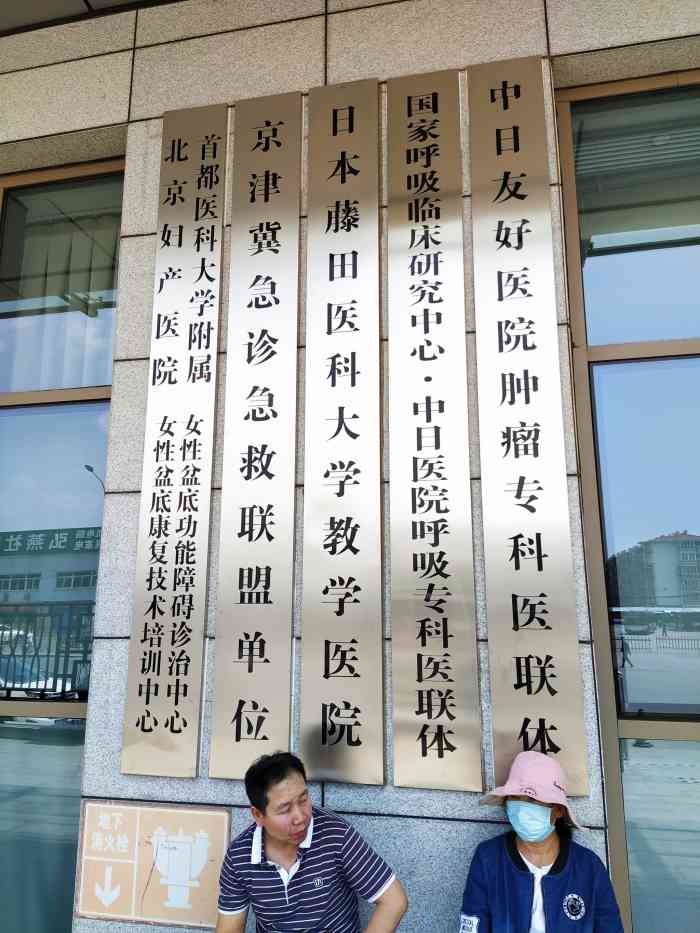 中日友好医院肿瘤专科医联体
国家呼吸临床研究中心·中日医院呼吸专科医联体
日本藤田医科大学教学医院
京津冀急诊急救联盟单位
首都医科大学附属
北京妇产医院
女性盆底功能障碍诊治中心
女性盆底康复技术培训中心
地下
消火栓
弘燕社